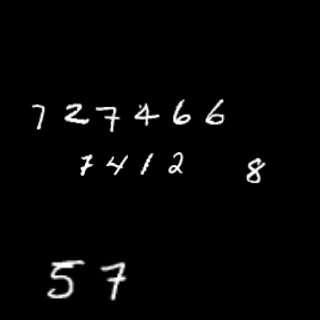 727466
7412 8
57